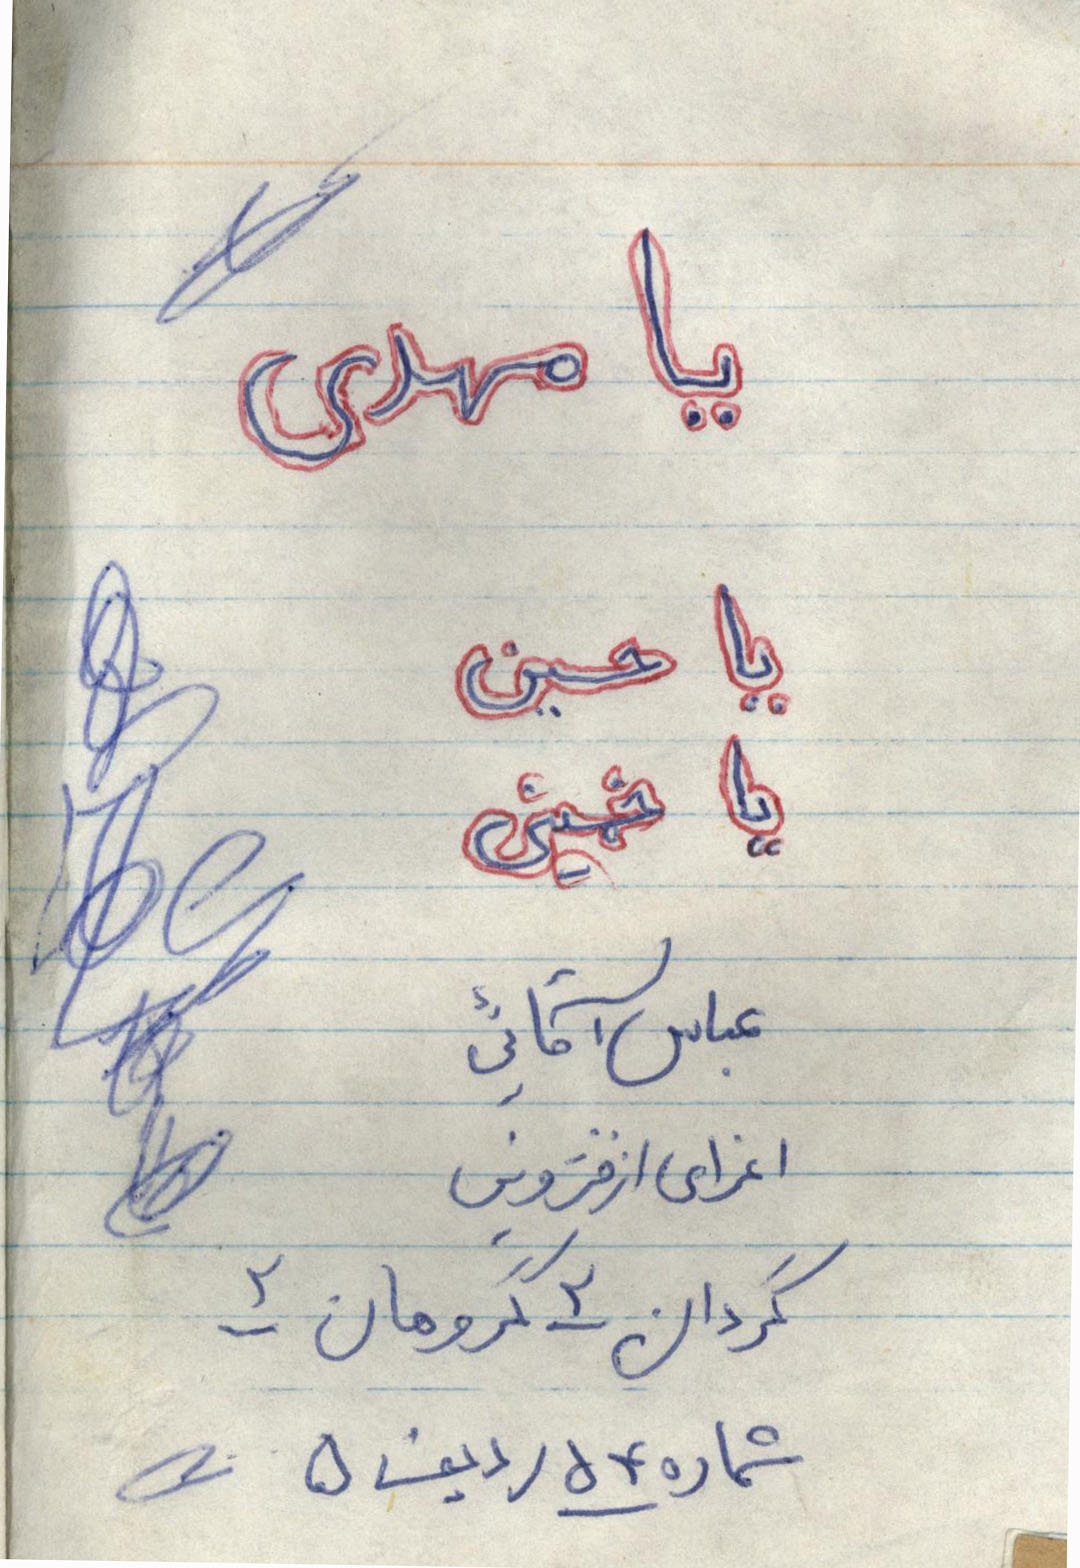 یا مهدی
یا حسین
یا خمینی
عباس آقائی
اعزامی از قزوین
گردان ۲ گروهان ۲
شماره ۵۴ ردیف ۵